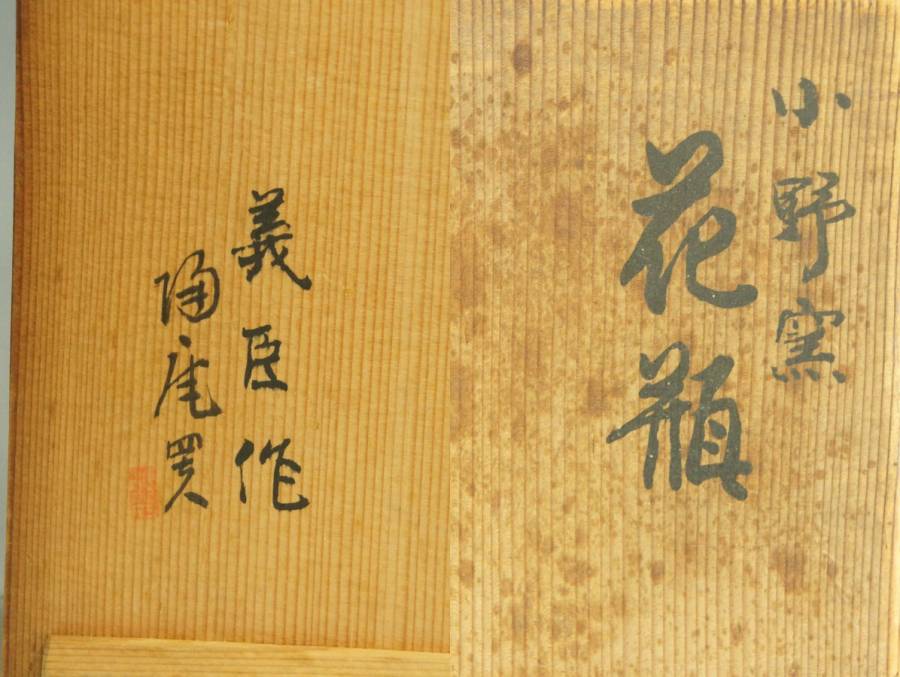 小野窯
花瓶
義臣作
陶